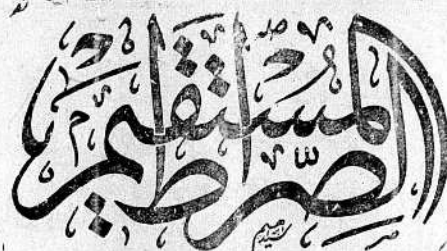 الصِّرَاطَ الْمُسْتَقِيمَ